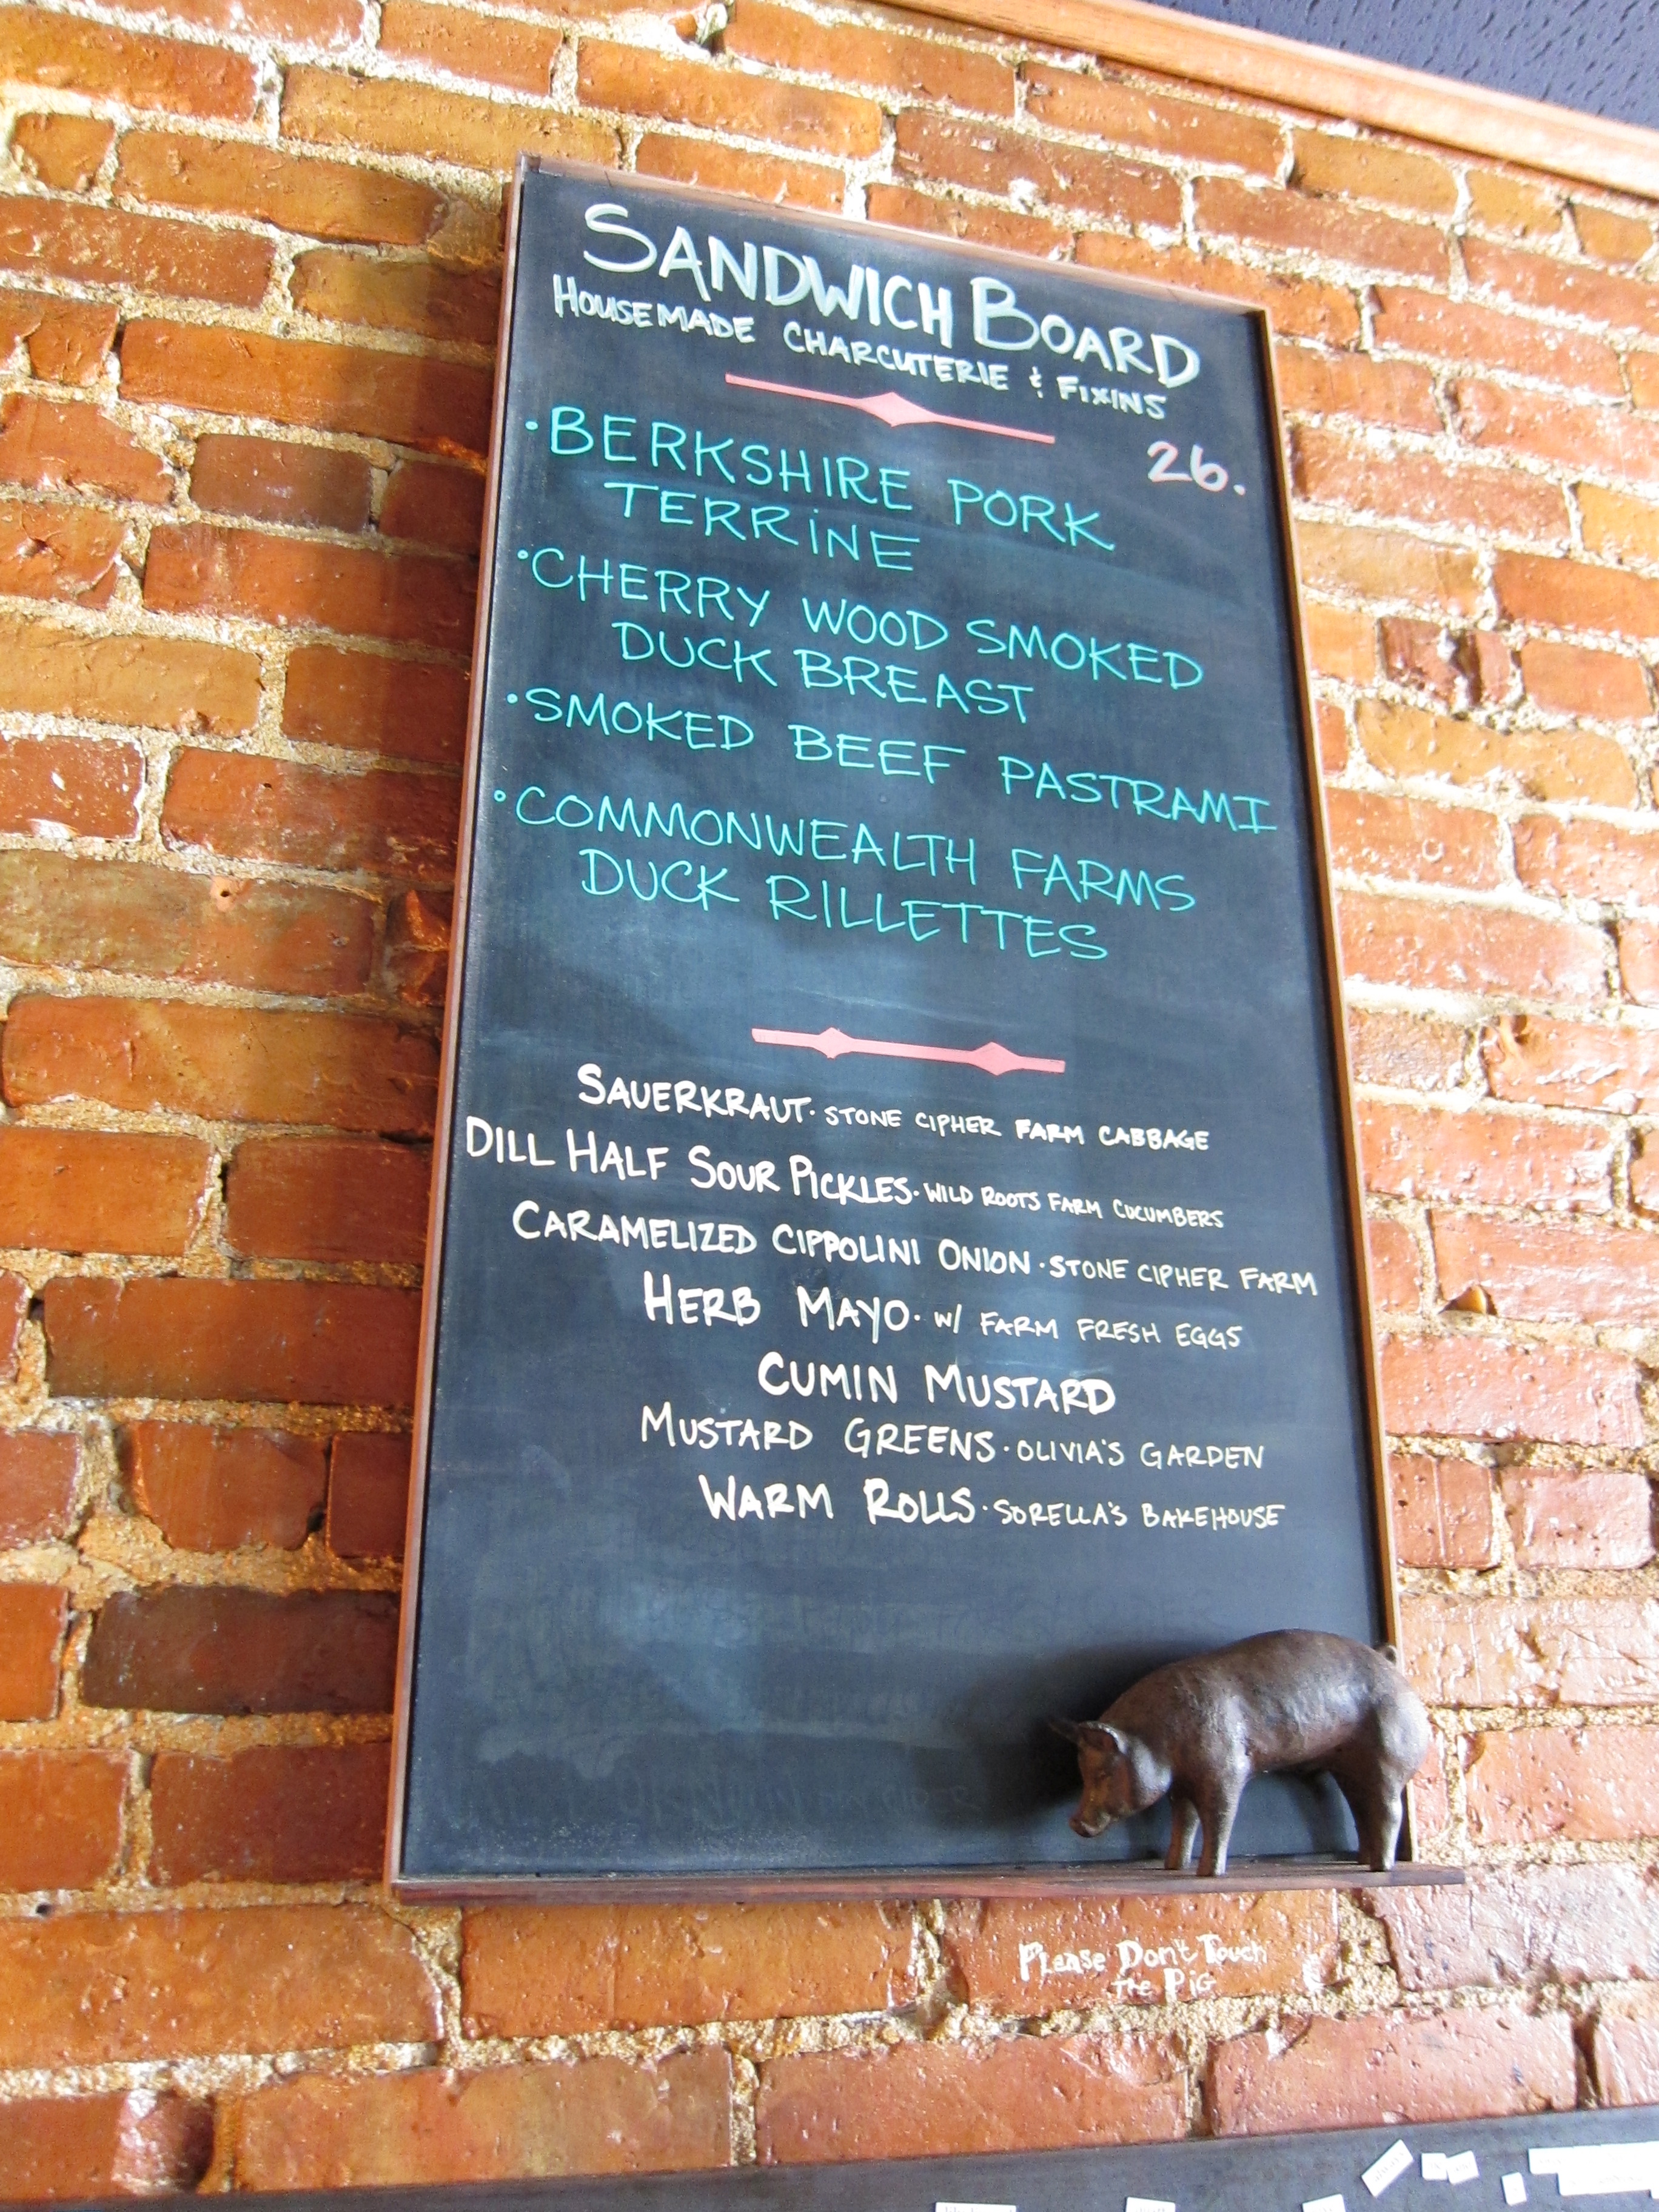 SANDWICH BOARD
HOUSEMADE CHARCUTERIE & FIXINS
26.
• BERKSHIRE PORK
TERRINE
• CHERRY WOOD SMOKED
DUCK BREAST
• SMOKED BEEF PASTRAMI
• COMMONWEALTH FARMS
DUCK RILLETTES
SAUERKRAUT · STONE CIPHER FARM CABBAGE
DILL HALF SOUR PICKLES · WILD ROOTS FARM CUCUMBERS
CARAMELIZED CIPPOLINI ONION · STONE CIPHER FARM
HERB MAYO · W/ FARM FRESH EGGS
CUMIN MUSTARD
MUSTARD GREENS · OLIVIA'S GARDEN
WARM ROLLS · SORELLA'S BAKEHOUSE
Please Don't Touch
the Pig